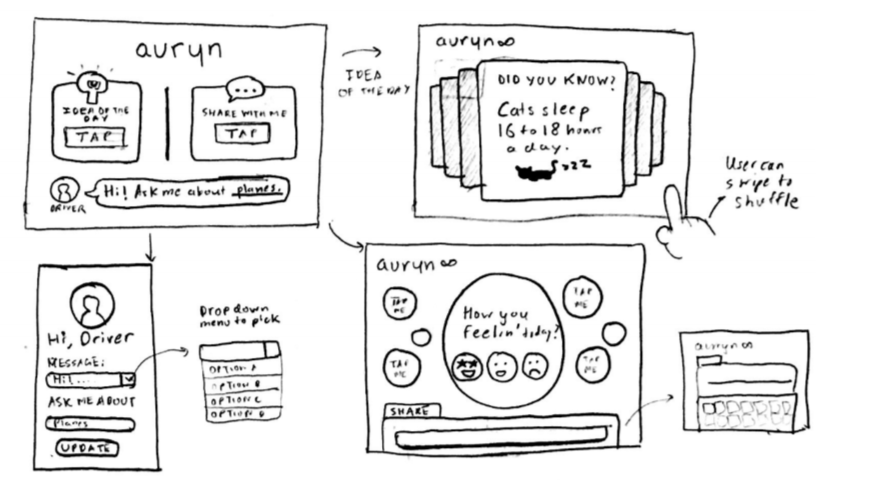 auryn
IDEA OF THE
DAY
TAP
SHARE WITH ME
TAP
DRIVER
Hi! Ask me about planes.
IDEA
OF THE DAY
auryn∞
DID YOU KNOW?
Cats sleep
16 to 18 hours
a day.
zzz
User can
swipe to
shuffle
Hi, Driver
MESSAGE:
Hi!...
ASK ME ABOUT
Planes
UPDATE
Drop down
menu to pick
OPTION A
OPTION B
OPTION C
OPTION D
auryn∞
TAP
ME
TAP
ME
How you
feelin' today?
TAP
ME
TAP
ME
SHARE
auryn∞